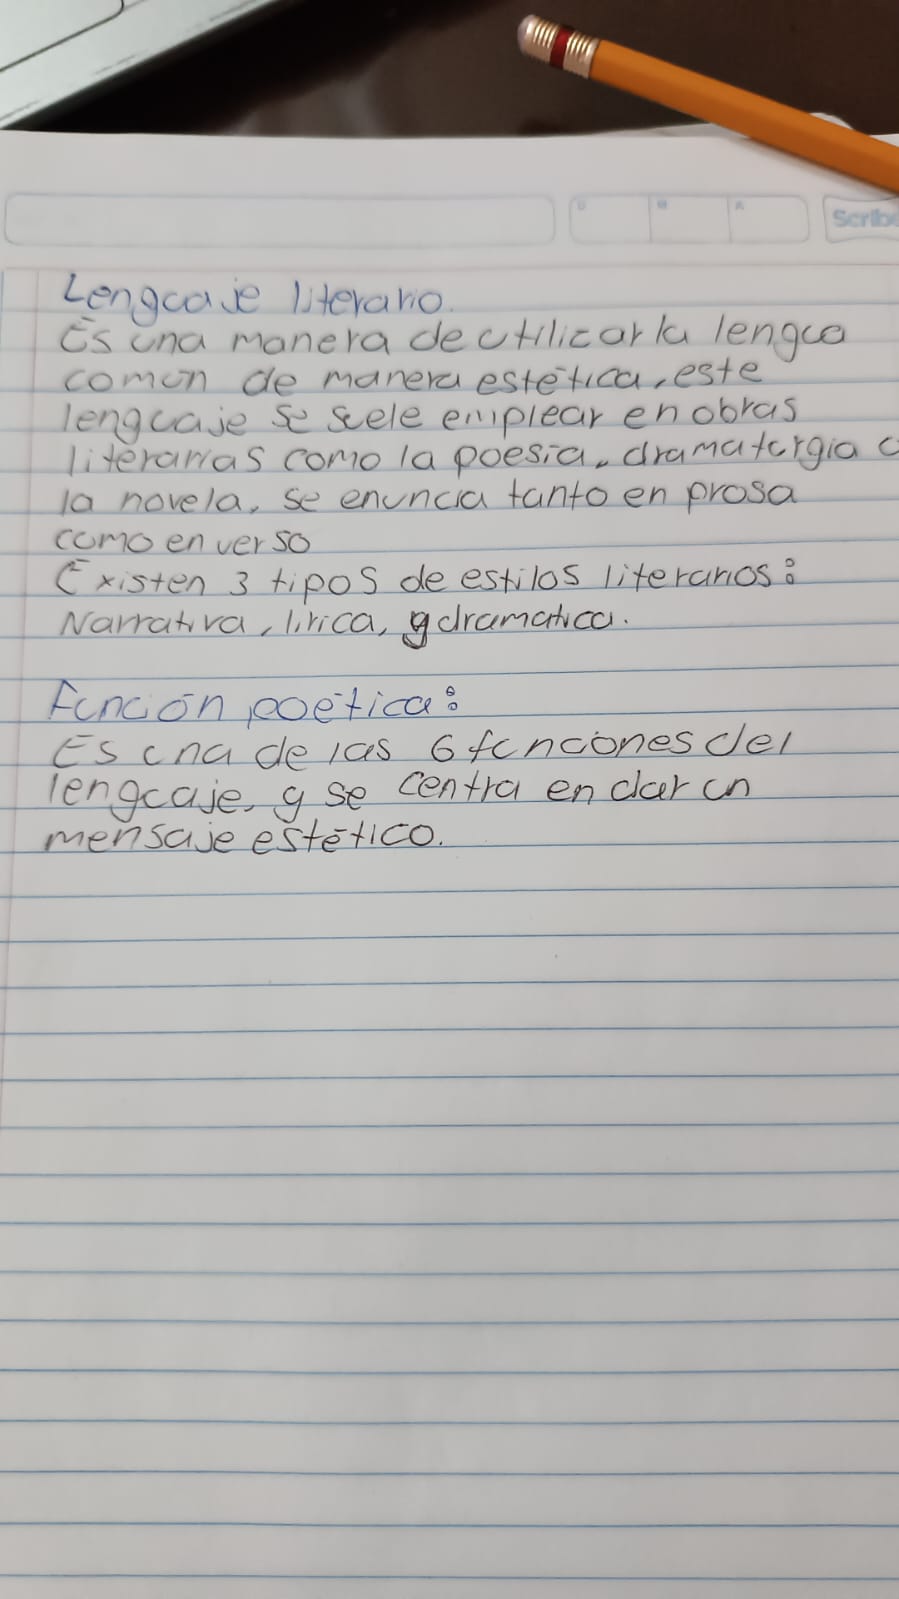 D M A Scribe
Lenguaje literario.
Es una manera de utilizar la lengua
común de manera estética, este
lenguaje se suele emplear en obras
literarias como la poesía, dramaturgia o
la novela, se enuncia tanto en prosa
como en verso
Existen 3 tipos de estilos literarios:
Narrativa, lírica, y dramatica.
Función poética:
Es una de las 6 funciones del
lenguaje, y se centra en dar un
mensaje estético.